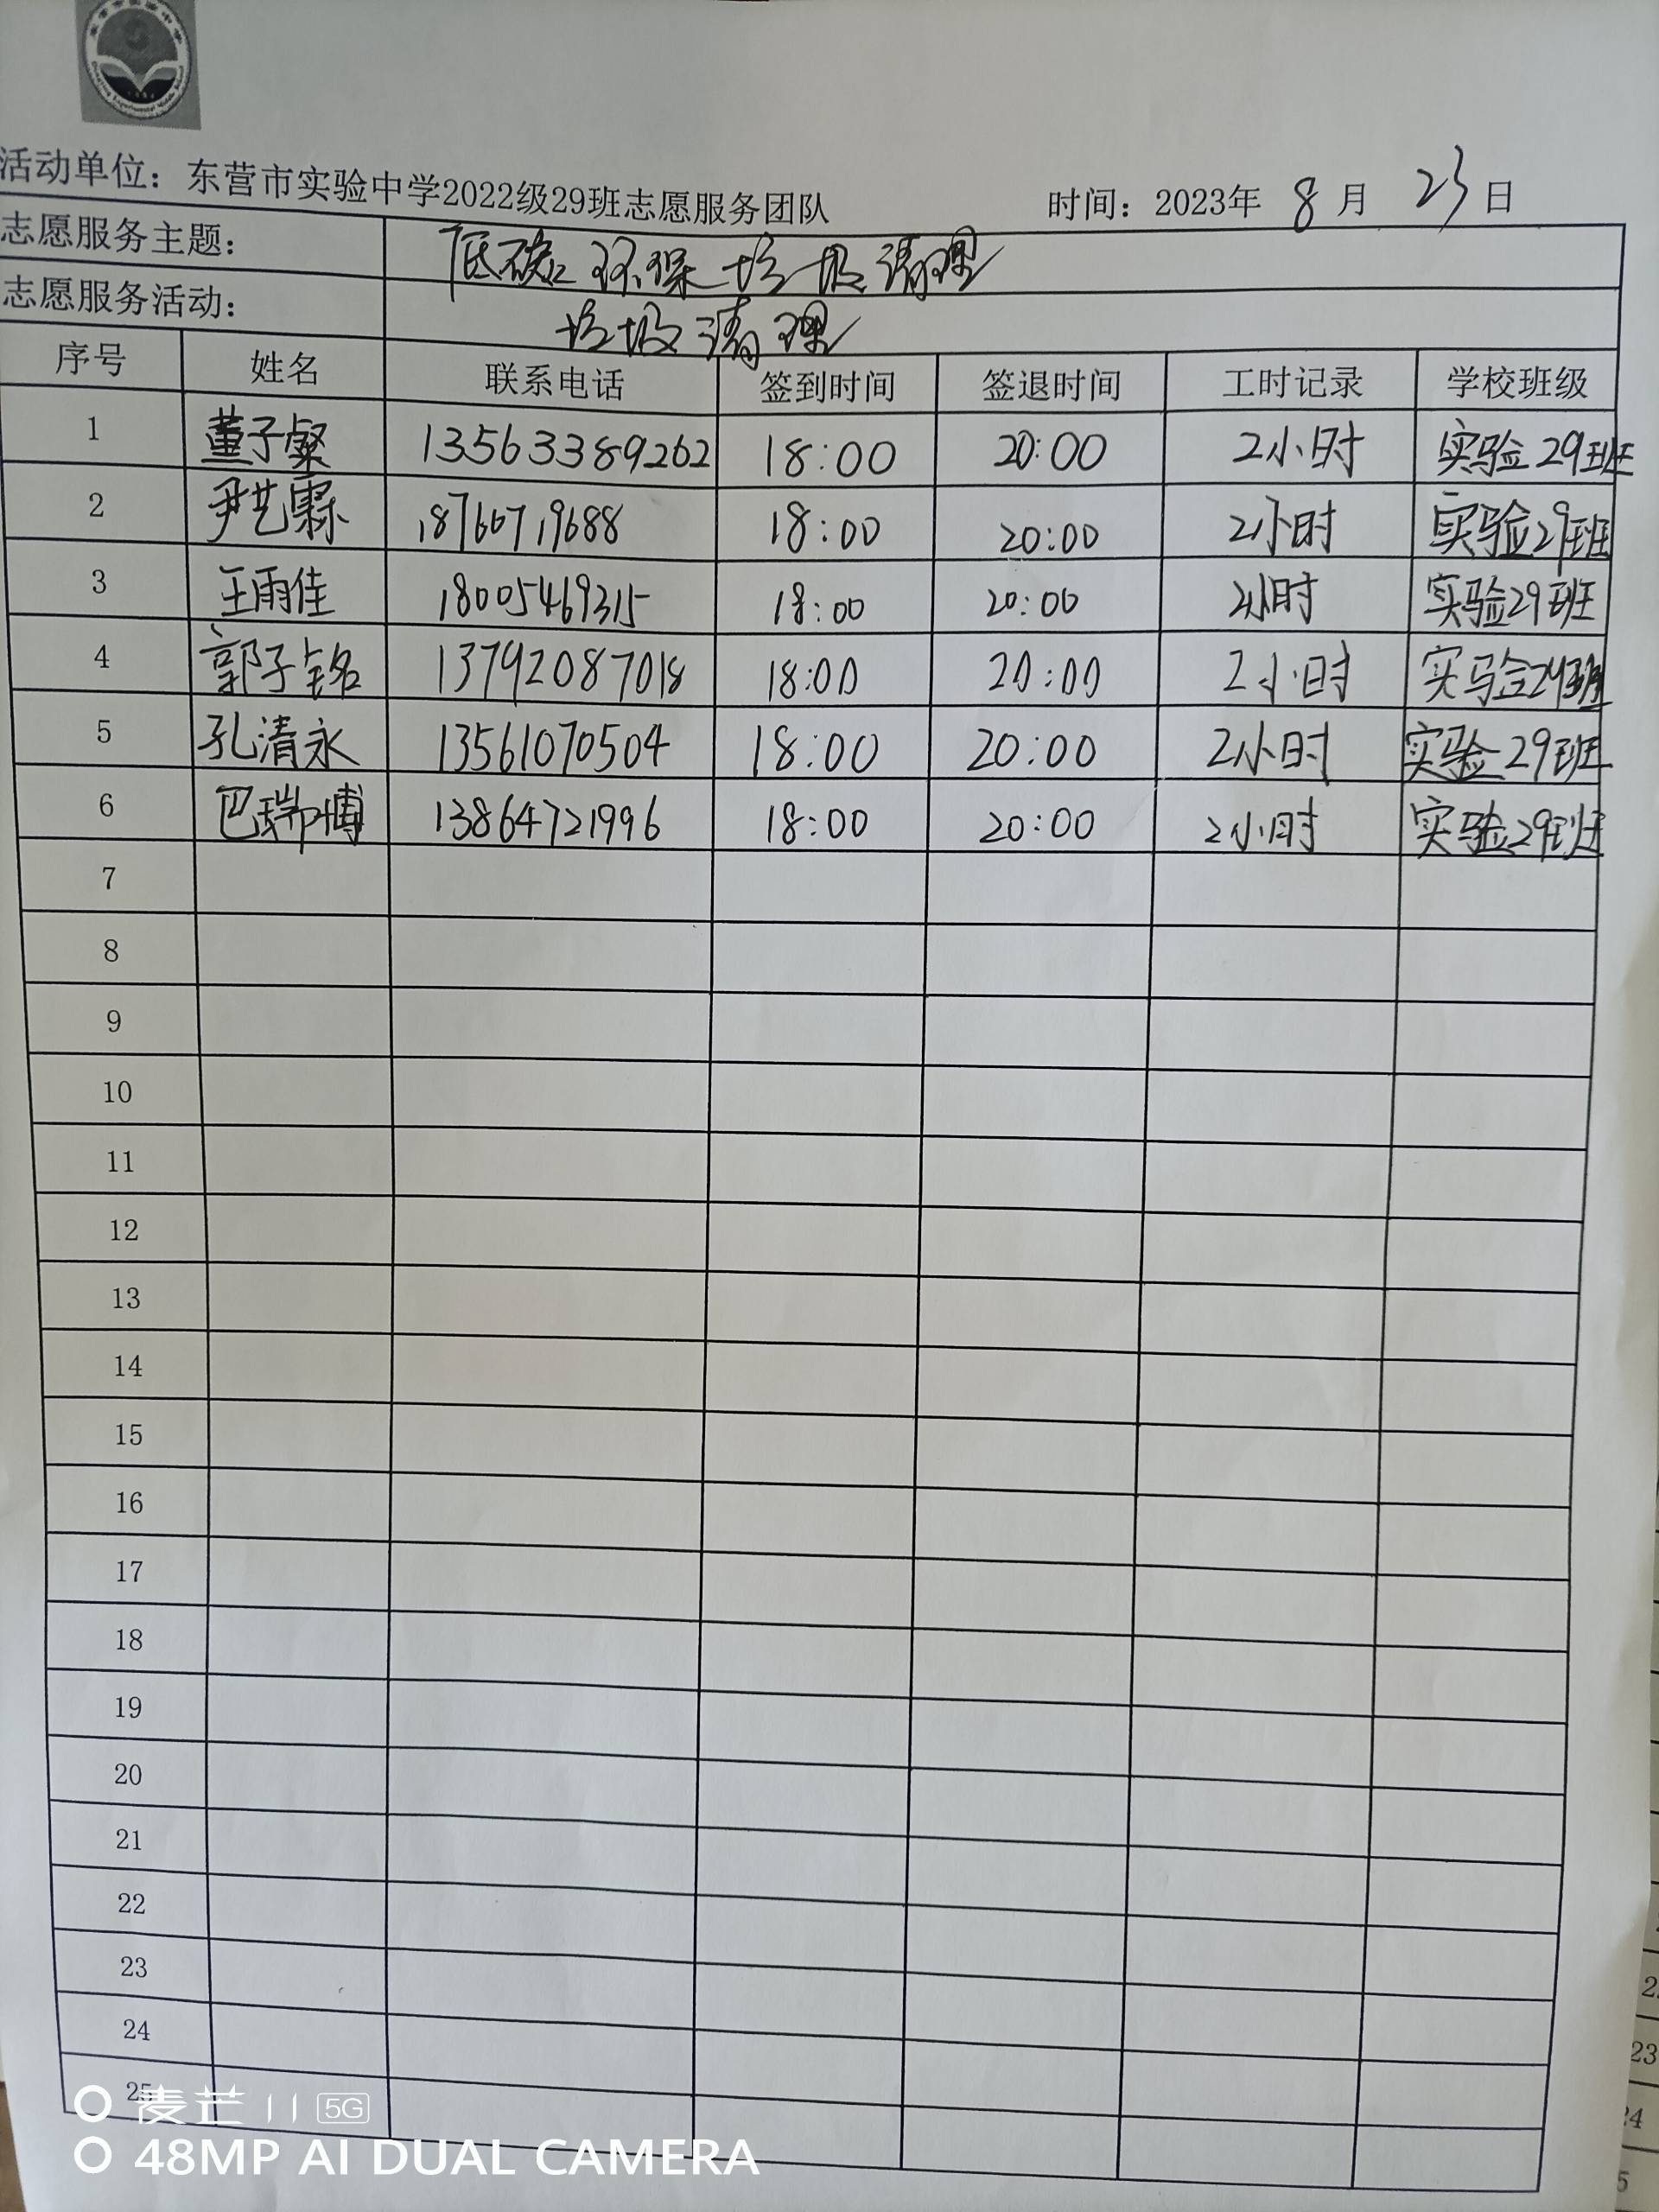 活动单位：东营市实验中学2022级29班志愿服务团队 时间：2023年 8 月 23 日
志愿服务主题： 低碳环保垃圾清理
志愿服务活动： 垃圾清理
序号 姓名 联系电话 签到时间 签退时间 工时记录 学校班级
1 董子粲 13563389262 18:00 20:00 2小时 实验29班
2 尹艺霖 18766719688 18:00 20:00 2小时 实验29班
3 王雨佳 18005469315 18:00 20:00 2小时 实验29班
4 郭子铭 13792087018 18:00 20:00 2小时 实验29班
5 孔清永 13561070504 18:00 20:00 2小时 实验29班
6 巴瑞博 13864721996 18:00 20:00 2小时 实验29班
7
8
9
10
11
12
13
14
15
16
17
18
19
20
21
22
23
24
25
麦芒11 5G
48MP AI DUAL CAMERA
23
24